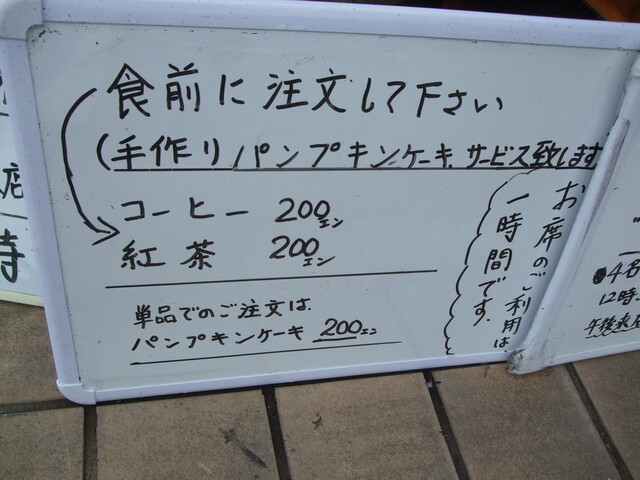 食前に注文して下さい
(手作りパンプキンケーキサービス致します
コーヒー 200エン
紅茶 200エン
単品でのご注文は、
パンプキンケーキ 200エン
お席のご利用は
一時間です.
4名
12時
午後
店